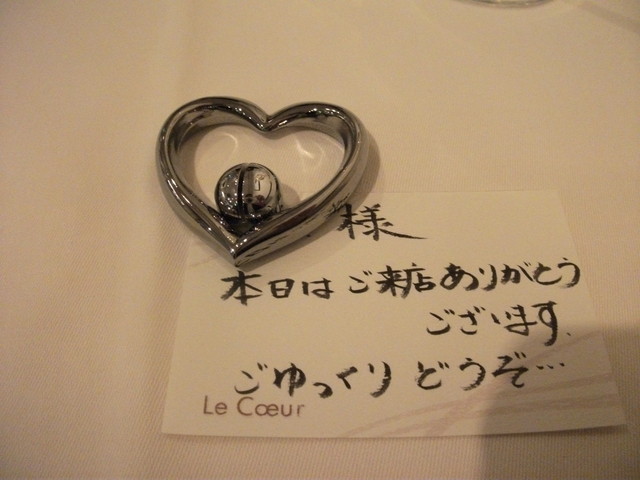 様
本日はご来店ありがとう
ございます.
ごゆっくりどうぞ…
Le Cœur